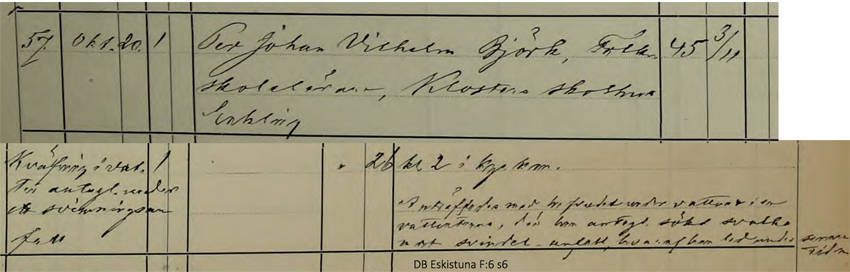 57 Okt. 20. 1 Per Johan Vilhelm Björk, Folk- 45 3/11
skolelärare, Klosters skolhus
Enkling
Kväfning i vat- 1 " 26 kl 2 i kyrkan.
ten antagl. under
ett svimningsan
fall
Anträffades med hufvudet under vattnet i en
vattentunna, der han antagl. sökt svalka
mot svindel-anfall, hvaraf han led under senare
tiden
DB Eskistuna F:6 s6